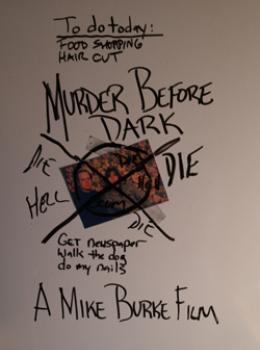 To do today:
FOOD SHOPPING
HAIR CUT
MURDER BEFORE
DARK
DIE
DIE
DIE
HELL
SCUM
DIE
GET newspaper
walk the dog
do my nails
A MIKE BURKE FILM